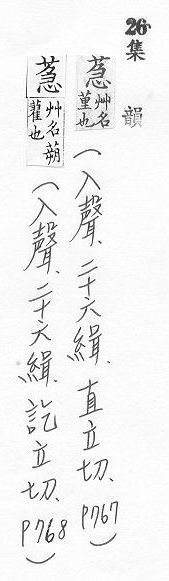 26.集韻
蒠艸名堇也(入聲、二十六緝、直立切、P767)
蒠艸名蒴藋也(入聲、二十六緝、訖立切、P768)